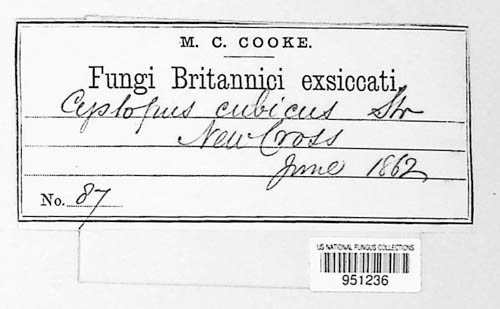 M. C. COOKE.
Fungi Britannici exsiccati.
cubicus Str
New Cross
June 1862
No. 87
US NATIONAL FUNGUS COLLECTIONS
951236